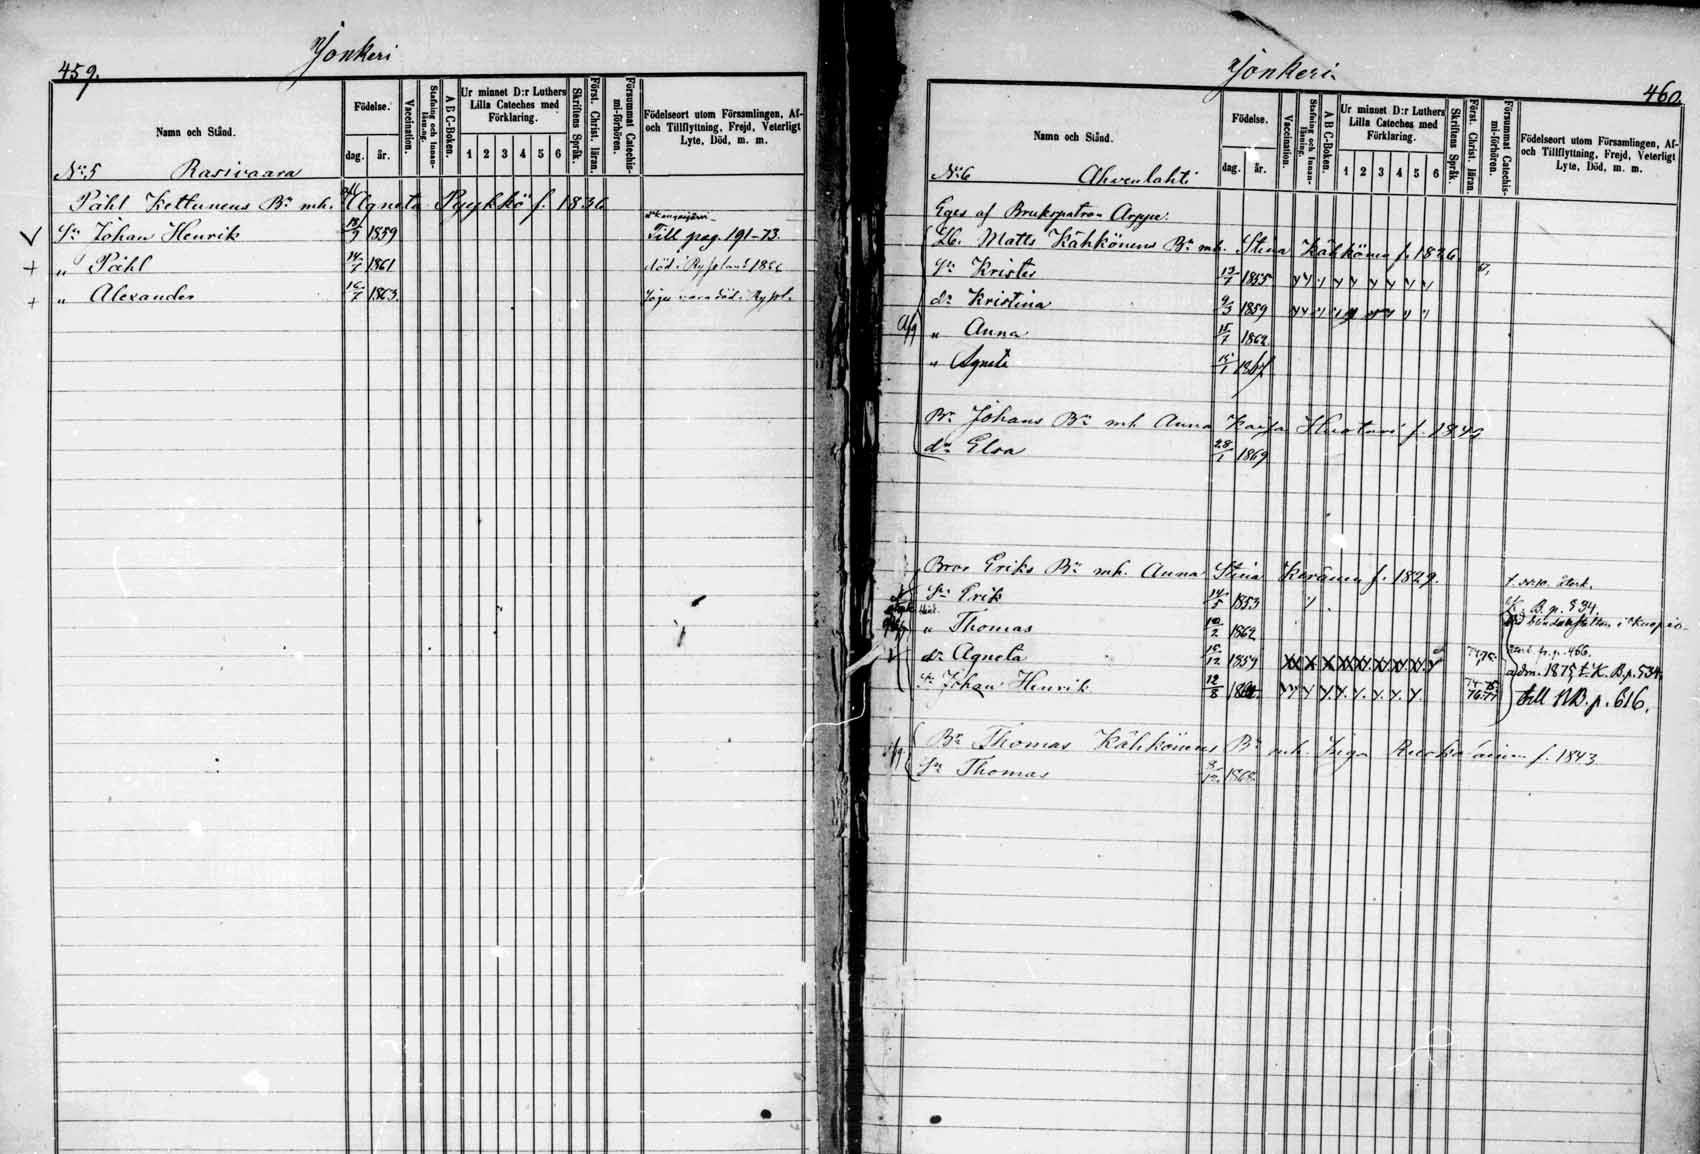 459.
Jonkeri
Namn och Stånd.
Födelse.
dag. år.
Vaccination.
Stafning och Innanläsning.
A B C-Boken.
Ur minnet D:r Luthers Lilla Cateches med Förklaring.
1 2 3 4 5 6
Skriftens Språk.
Först. Christ. läran.
Försummat Catechismi-förhören.
Födelseort utom Församlingen, Af- och Tillflyttning, Frejd, Veterligt Lyte, Död, m. m.
No: 5 Rasivaara
Påhl Kettunens Bn mh. Agneta Pyykkö f. 1836
Sn Johan Henrik 1859 Till pag. 191-73.
" Påhl 1861 död i Ryssland 1866
" Alexander 16/7 1863. säges vara död i Ryssl.
Jonkeri
460.
Namn och Stånd.
Födelse.
dag. år.
Vaccination.
Stafning och Innanläsning.
A B C-Boken.
Ur minnet D:r Luthers Lilla Cateches med Förklaring.
1 2 3 4 5 6
Skriftens Språk.
Först. Christ. läran.
Försummat Catechismi-förhören.
Födelseort utom Församlingen, Af- och Tillflyttning, Frejd, Veterligt Lyte, Död, m. m.
No: 6 Ahvenlahti
Eges af Brukspatron Arppe.
Lb. Matts Kähkönens Bn mh. Stina Kähkönen f. 1826.
Sn Krister 1855
dr Kristina 9/3 1859
" Anna 1862
" Agneta 1867
Br Johans Bn mh Anna Kaisa Huotari f. 1845
dr Elsa 28/1 1869
Bror Eriks Bn mh. Anna Stina Keränen f. 1829.
Sn Erik 14/5 1853
" Thomas 1862
dr Agneta 1859 adm. 1875 t. K. B. p. 534.
Sn Johan Henrik 12/8 till NB. p. 616.
Br Thomas Kähkönens Bn mh. Inga f. 1843
Sn Thomas 1868